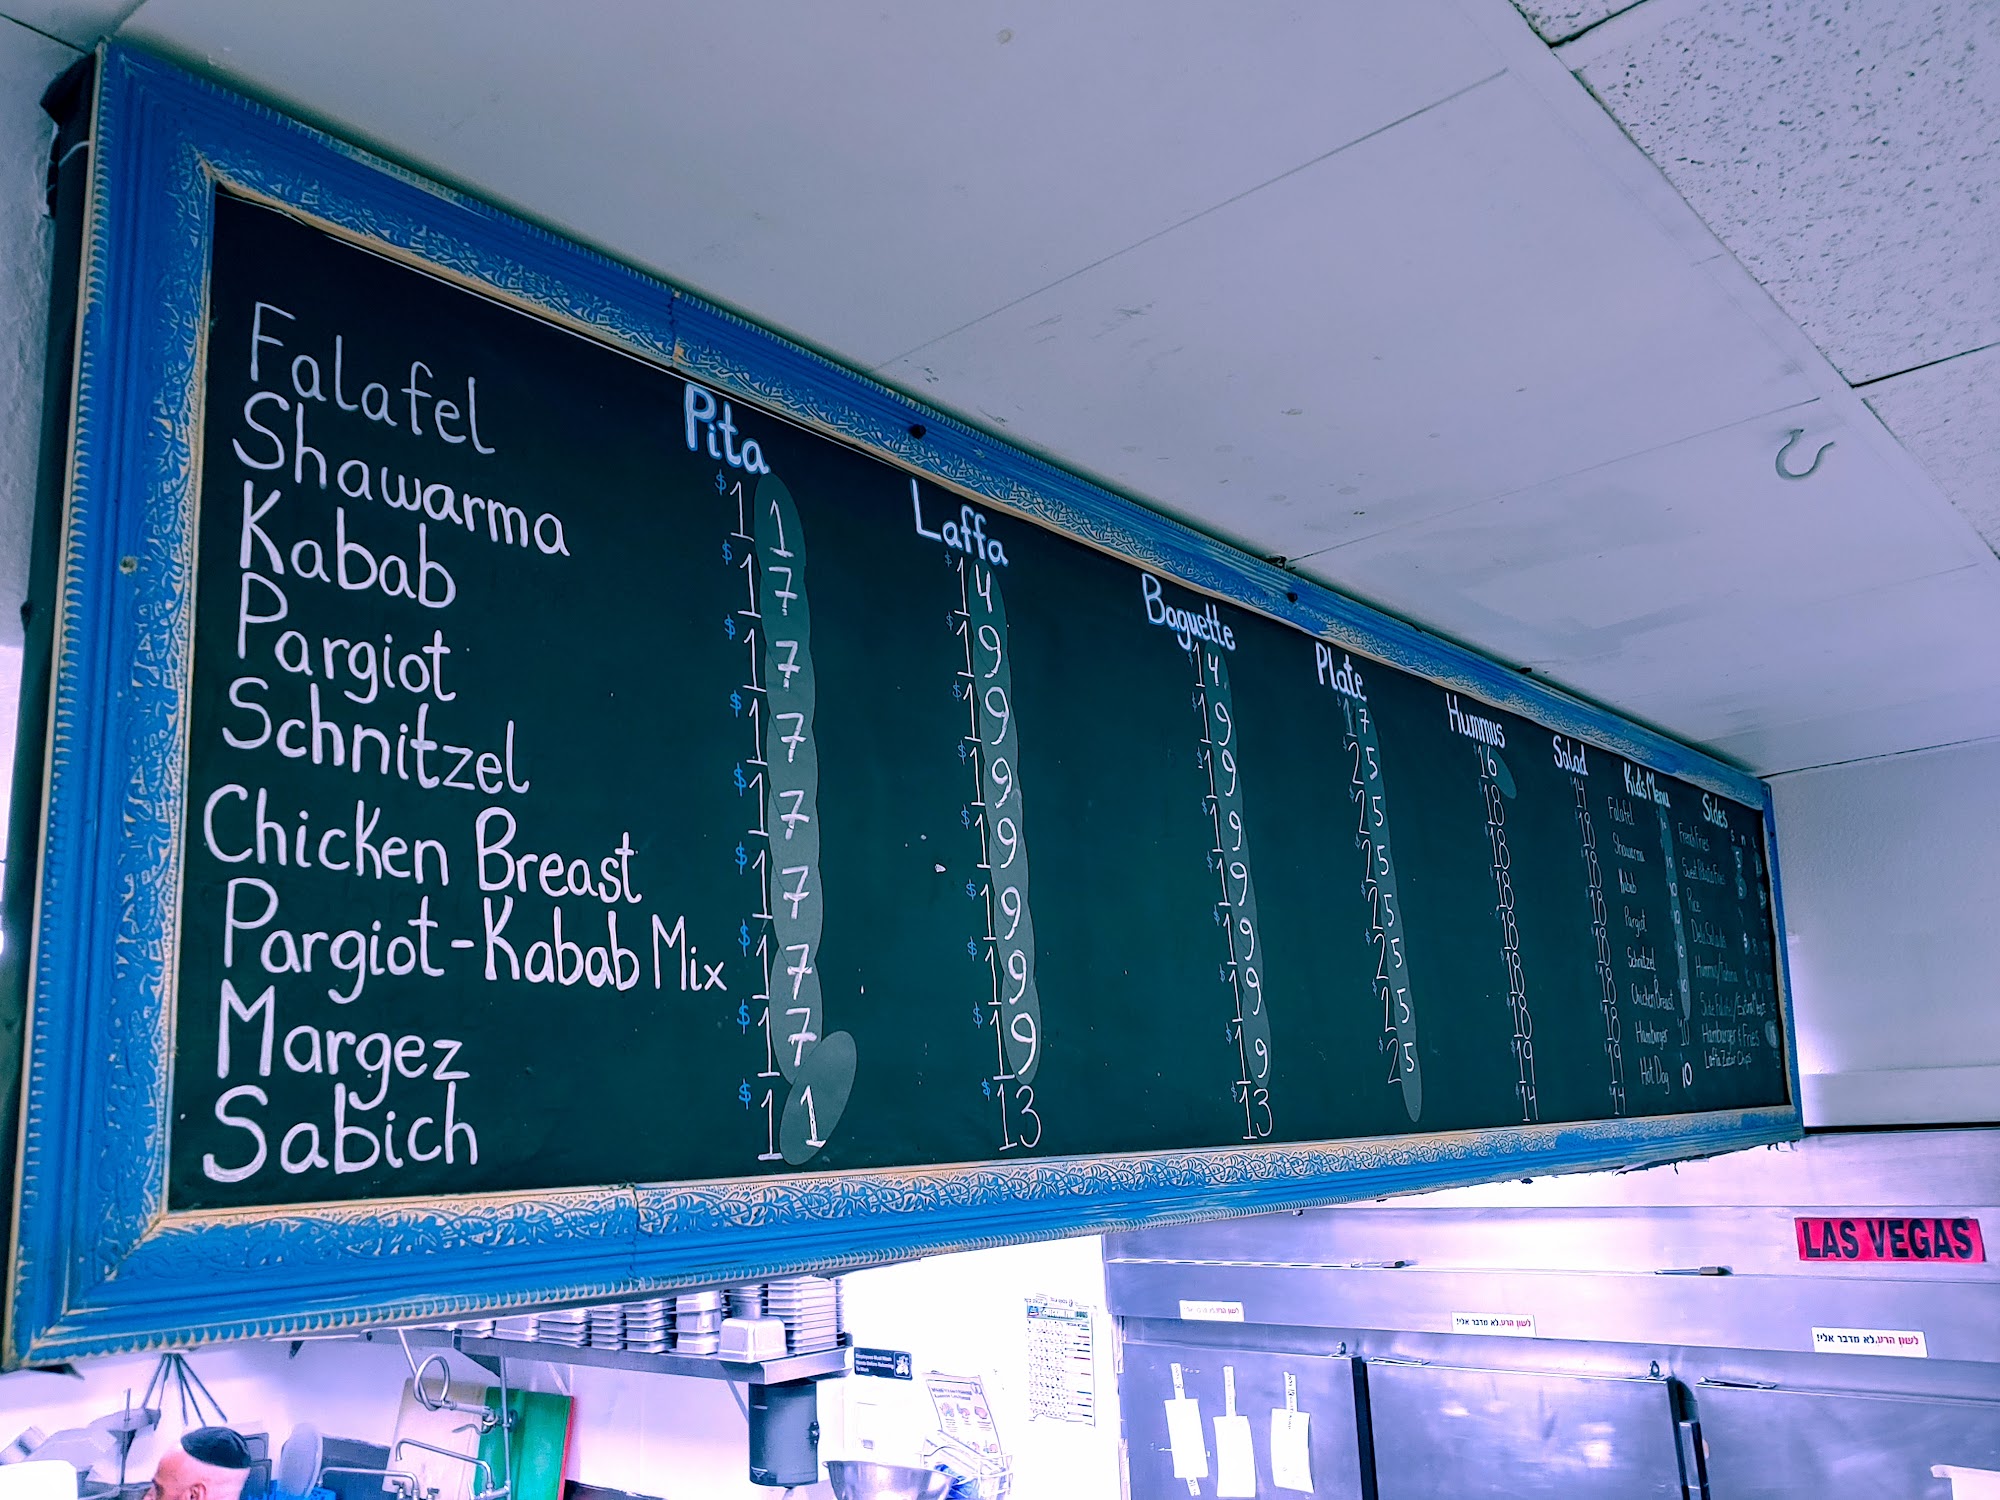 Pita Laffa Baguette Plate Hummus Salad Kid's Menu Sides
Falafel $11 $14 $14 $17 $16 14
Shawarma $17 $19 $19 $25 18 18
Kabab $17 $19 $19 $25 18 18
Pargiot $17 $19 $19 $25 18 18
Schnitzel $17 $19 $19 $25 18 18
Chicken Breast $17 $19 $19 $25 18 18
Pargiot-Kabab Mix $17 $19 $19 $25 18 18
Margez $17 $19 $19 $25 19 19
Sabich $11 $13 $13 14 14
Falafel
Shawarma
Kabab
Pargiot
Schnitzel
Chicken Breast
Hamburger 10
Hot Dog 10
French Fries
Sweet Potato Fries
Hamburger & Fries
LAS VEGAS
לשון הרע, לא מדבר אלי!
לשון הרע, לא מדבר אלי!
לשון הרע, לא מדבר אלי!
Employees Must Wash
Hands Before Returning
To Work